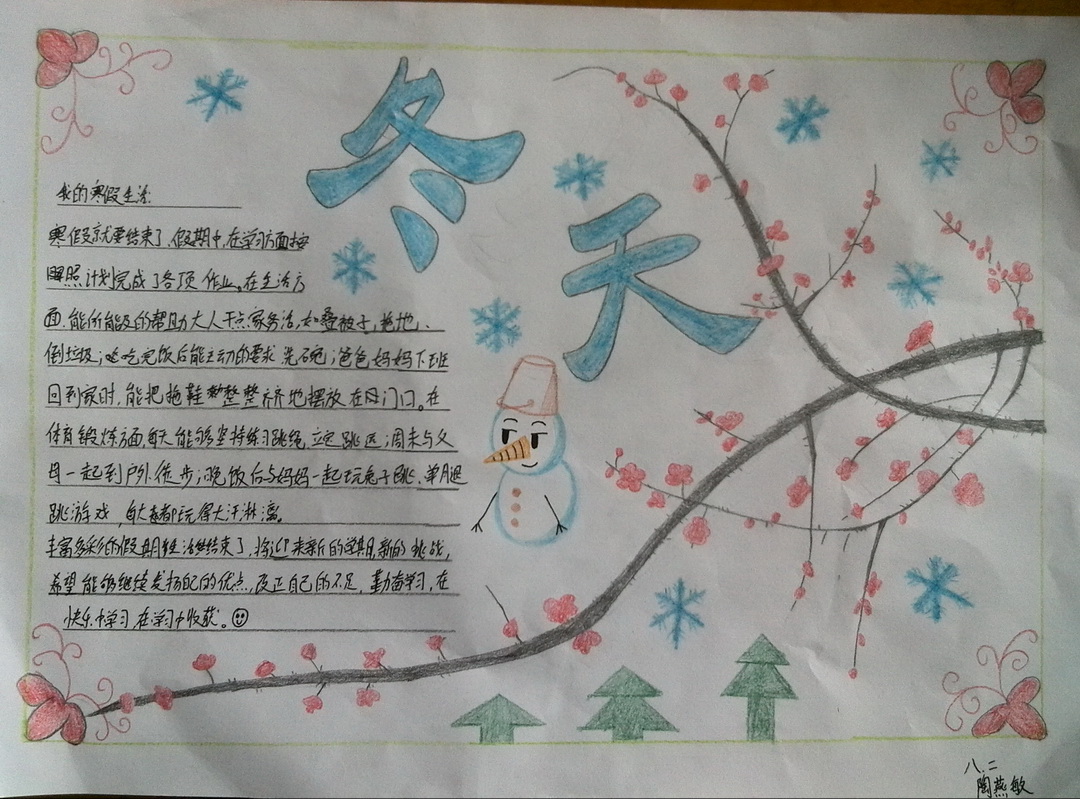 冬天
我的寒假生活:
寒假就要结束了,假期中,在学习方面按
照计划完成了各项作业。在生活方
面,能所能及的帮助大人干点家务活,如叠被子,拖地、
倒垃圾;吃完饭后能主动的要求洗碗;爸爸妈妈下班
回到家时,能把拖鞋整整齐齐地摆放在门口。在
体育锻炼方面,每天能够坚持练习跳绳,立定跳远;周末与父
母一起到户外徒步;晚饭后与妈妈一起玩兔子跳、单腿
跳游戏,每次都玩得大汗淋漓。
丰富多彩的假期生活结束了,将迎来新的学期,新的挑战,
希望能够继续发扬自己的优点,改正自己的不足,勤奋学习,在
快乐中学习,在学习中收获。
八.二
陶燕敏